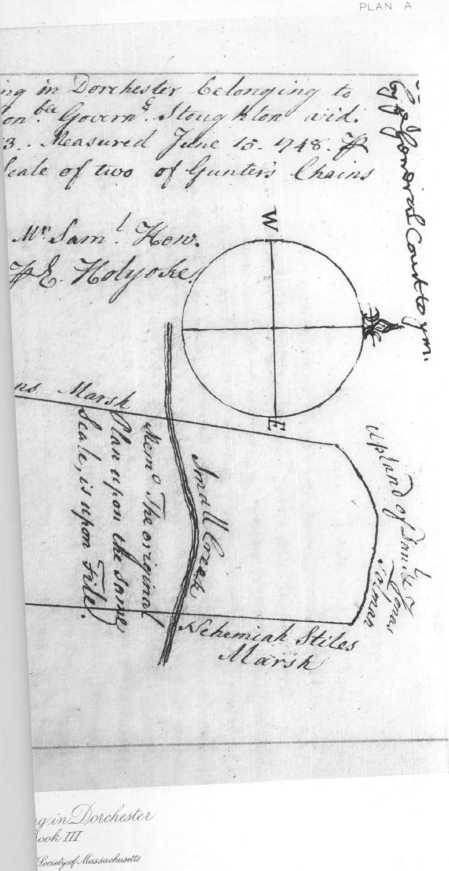 PLAN A
ng in Dorchester belonging to
on.ble Govern.r Stoughton vid.
3. Measured June 15. 1748. ⅌
Scale of two of Gunter's Chains
Mr Sam.l How.
⅌ E. Holyoke.
General Court to ym.
W
E
us Marsh
Small Creek
Mem.o The original
Plan upon the same
Scale, is upon File.
Upland of Dan.l &
Jonas
Tolman
Nehemiah Stiles
Marsh
ng in Dorchester
ook III
Society of Massachusetts